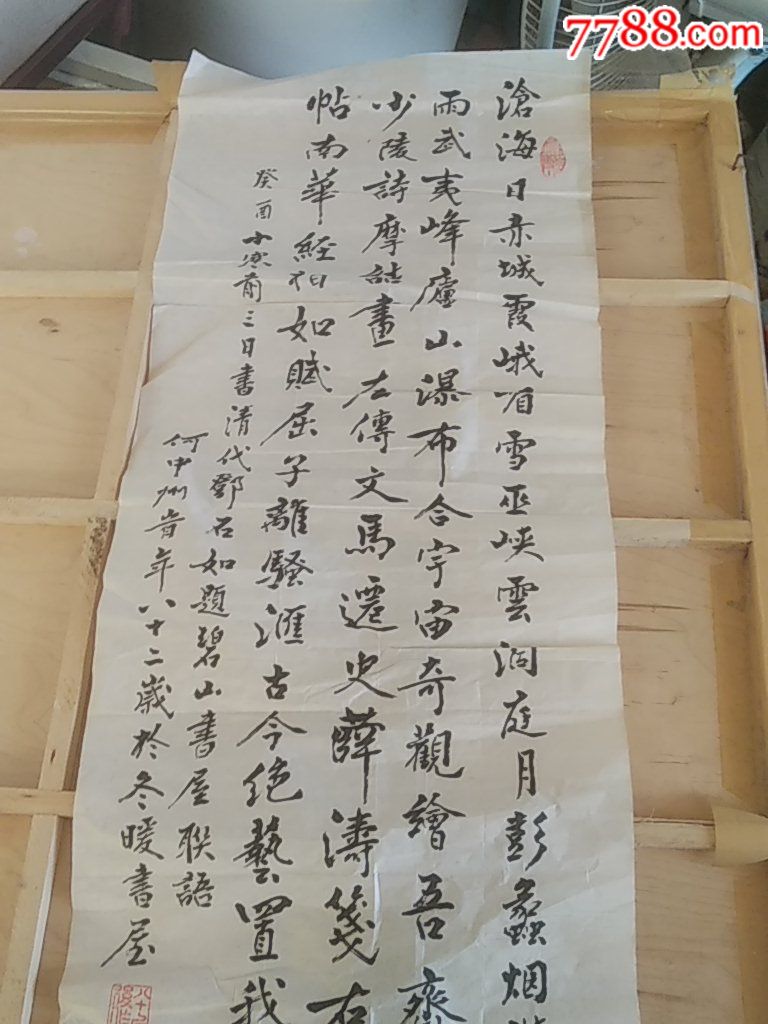 7788.com
滄海日赤城霞峨眉雪巫峽雲洞庭月彭蠡烟
雨武夷峰廬山瀑布合宇宙奇觀繪吾齋
少陵詩摩詰畫左傳文馬遷史薛濤箋右
帖南華經相如賦屈子離騷滙古今絶藝置我
癸酉小寒前三日書清代鄧石如題碧山書屋聯語
何中州昔年八十二歲於冬暖書屋